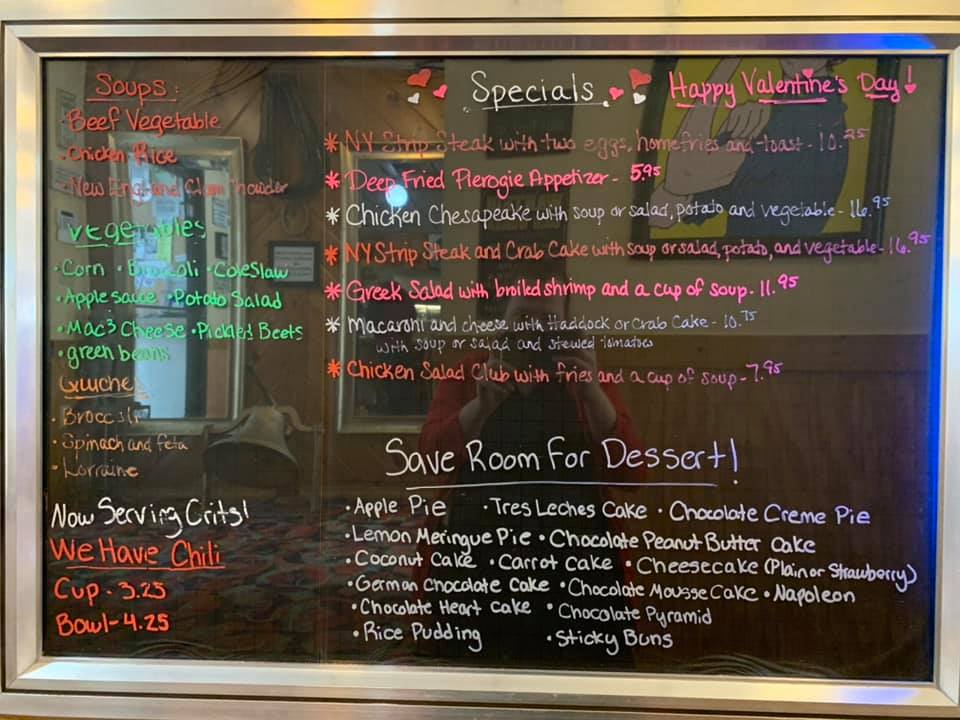 Soups:
• Beef Vegetable
• Chicken Rice
• New England Clam Chowder
Vegetables
• Corn • Broccoli • Coleslaw
• Applesauce • Potato Salad
• Mac & Cheese • Pickled Beets
• green beans
Quiche
• Broccoli
• Spinach and feta
• Lorraine
Now Serving Grits!
We Have Chili
Cup - 3.25
Bowl - 4.25
Specials
Happy Valentine's Day!
* NY Strip Steak with two eggs, homefries and toast - 10.25
* Deep Fried Pierogie Appetizer - 5.95
* Chicken Chesapeake with soup or salad, potato and vegetable - 16.95
* NY Strip Steak and Crab Cake with soup or salad, potato, and vegetable - 16.95
* Greek Salad with broiled shrimp and a cup of soup - 11.95
* Macaroni and cheese with Haddock or Crab Cake - 10.75
with soup or salad and stewed tomatoes
* Chicken Salad Club with fries and a cup of soup - 7.95
Save Room For Dessert!
• Apple Pie • Tres Leches Cake • Chocolate Creme Pie
• Lemon Meringue Pie • Chocolate Peanut Butter Cake
• Coconut Cake • Carrot Cake • Cheesecake (Plain or Strawberry)
• German Chocolate Cake • Chocolate Mousse Cake • Napoleon
• Chocolate Heart Cake • Chocolate Pyramid
• Rice Pudding • Sticky Buns